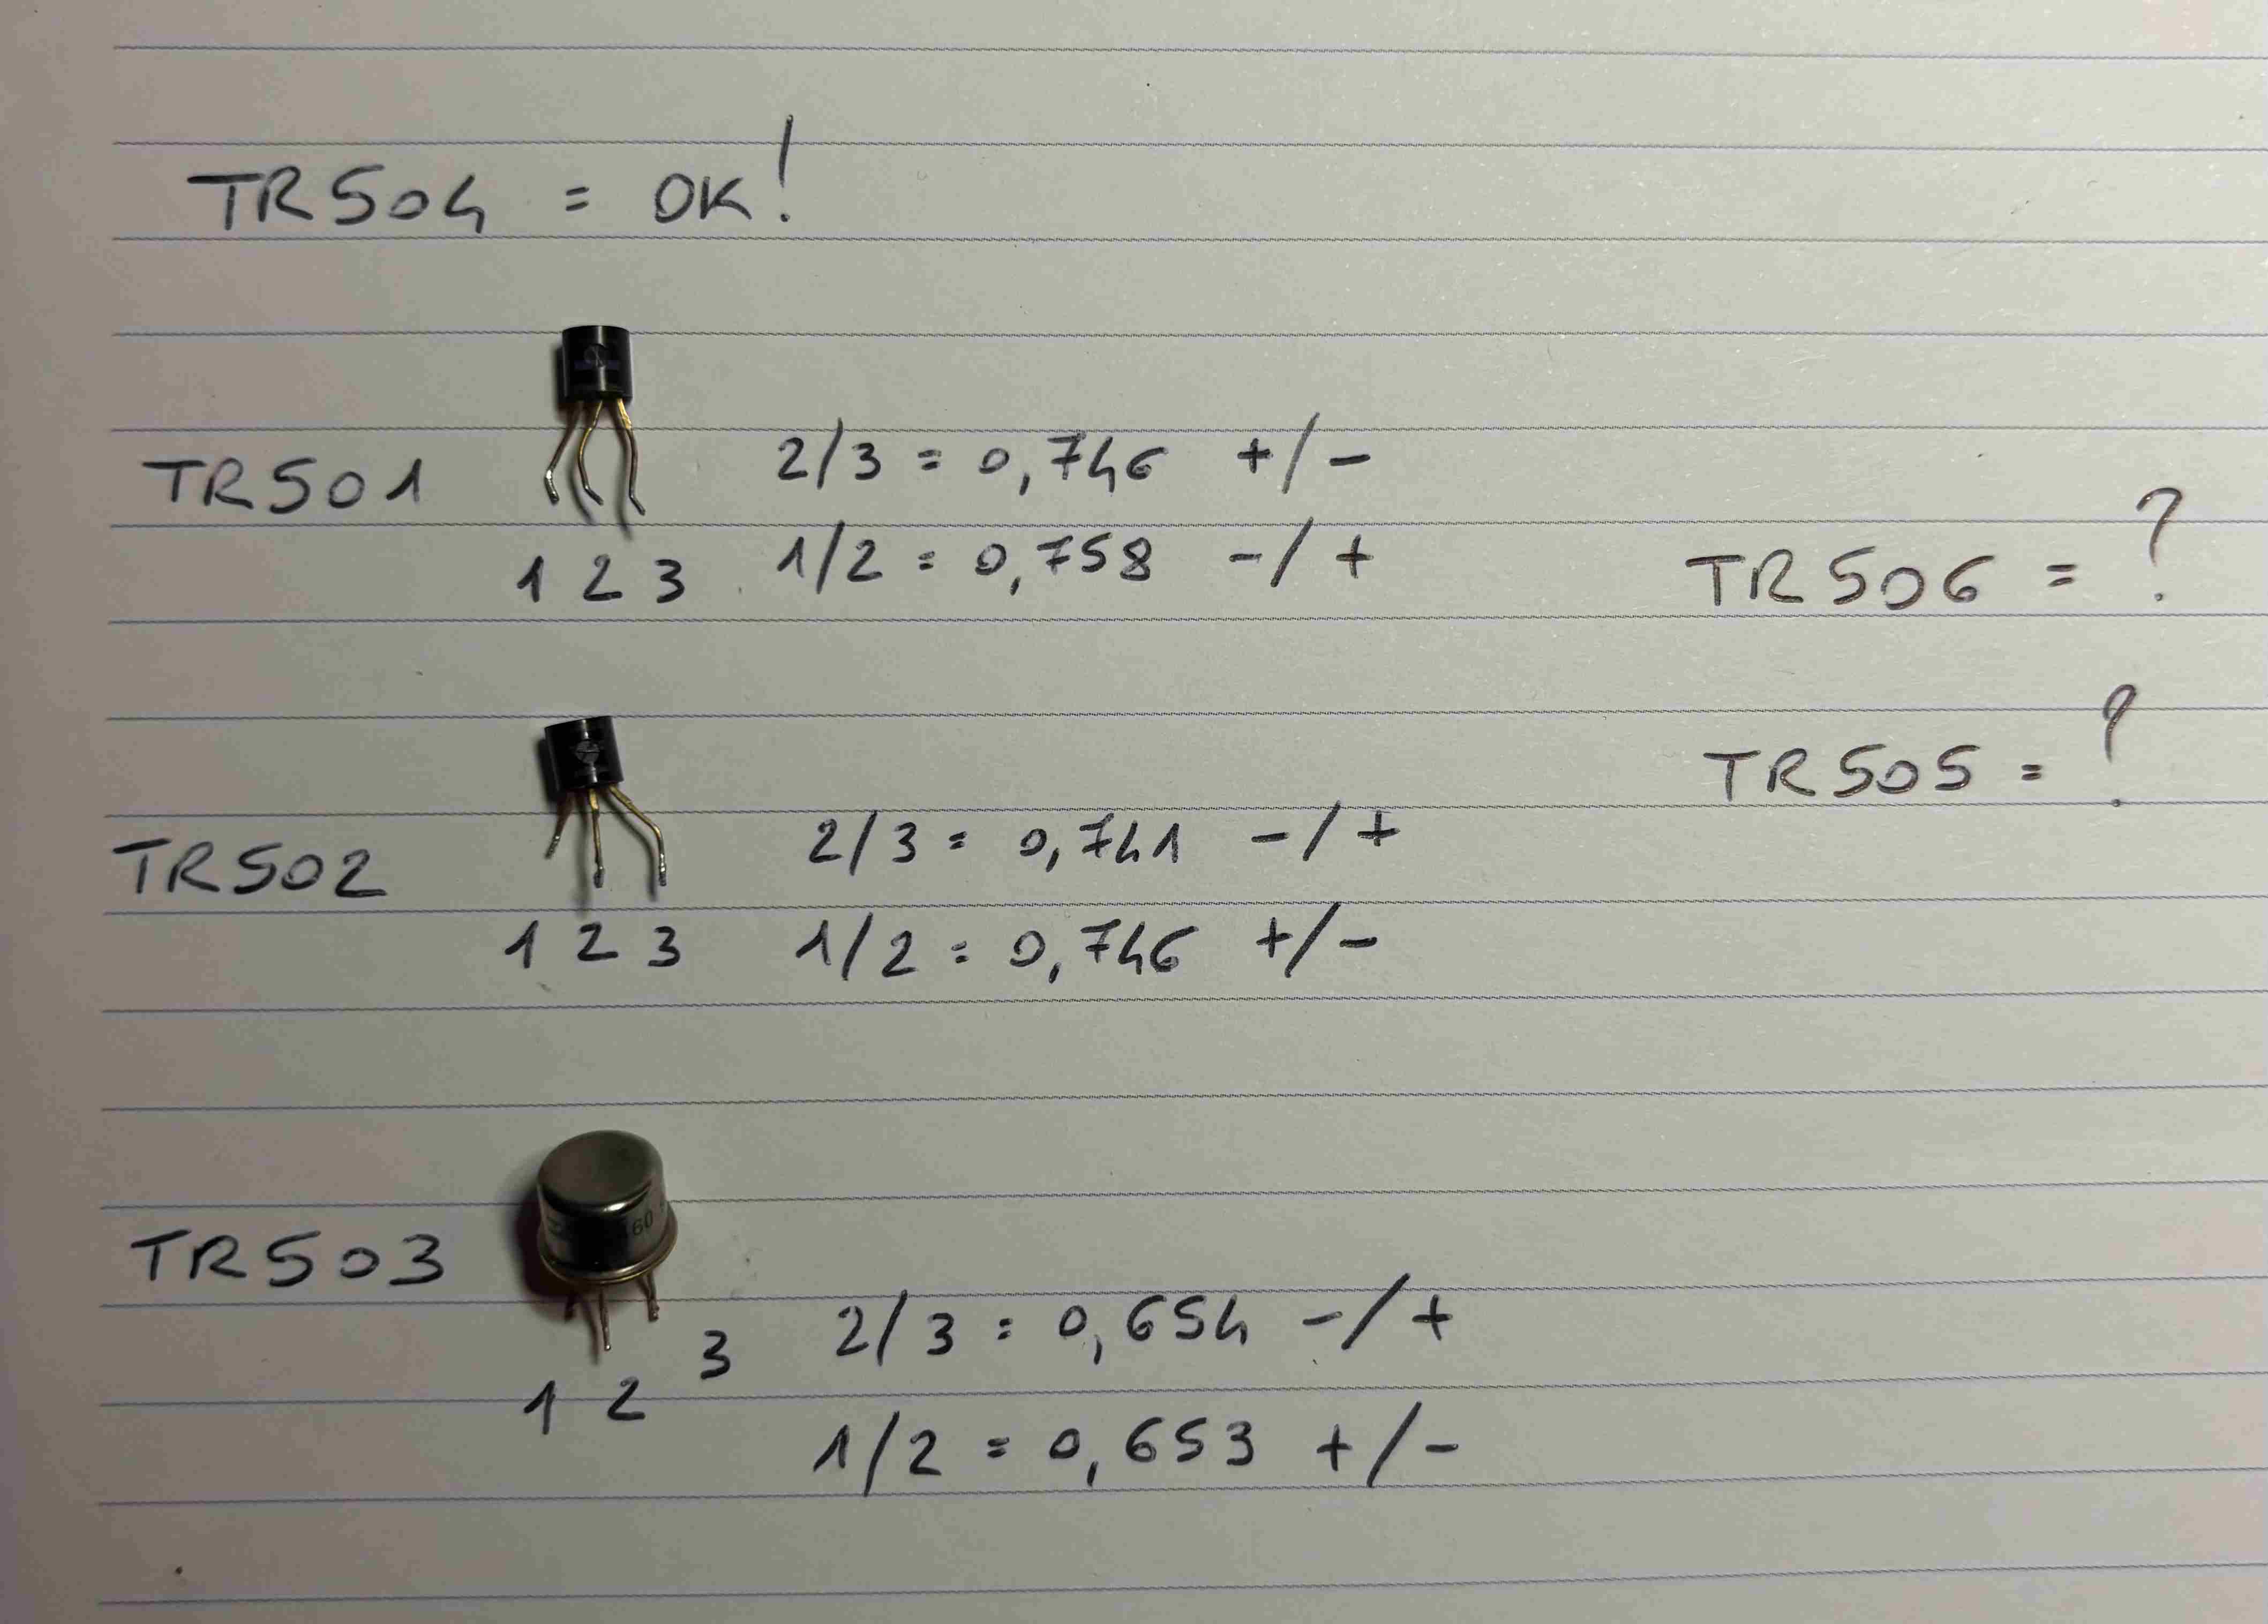 TR504 = OK!
TR501
2/3 = 0,746 +/-
1 2 3
1/2 = 0,758 -/+
TR506 = ?
TR505 = ?
TR502
2/3 = 0,741 -/+
1 2 3
1/2 = 0,746 +/-
60
TR503
1 2 3
2/3 = 0,654 -/+
1/2 = 0,653 +/-